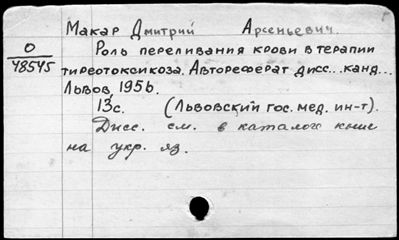 Макар Дмитрий Арсеньевич.
О
48545
Роль переливания крови в терапии
тиреотоксикоза. Автореферат дисс... канд...
Львов, 1956.
13с. (Львовский гос. мед. ин-т).
Дисс. см. в каталоге книг
на укр. яз.